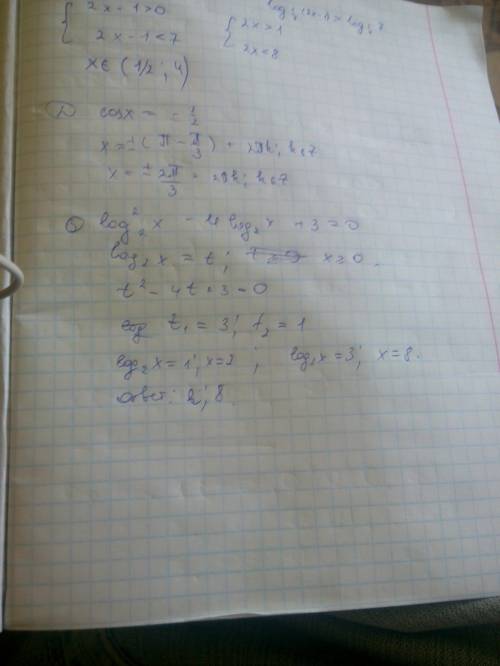 2x - 1 > 0
2x - 1 < 7
2x > 1
2x < 8
x ∈ (1/2; 4)
cos x = - 1/2
x = ± (π - π/3) + 2πk; k ∈ Z
x = ± 2π/3 + 2πk; k ∈ Z
log₂² x - 4 log₂ x + 3 = 0
log₂ x = t; x > 0.
t² - 4t + 3 = 0
t₁ = 3; t₂ = 1
log₂ x = 1; x = 2; log₂ x = 3; x = 8.
Ответ: 2; 8.